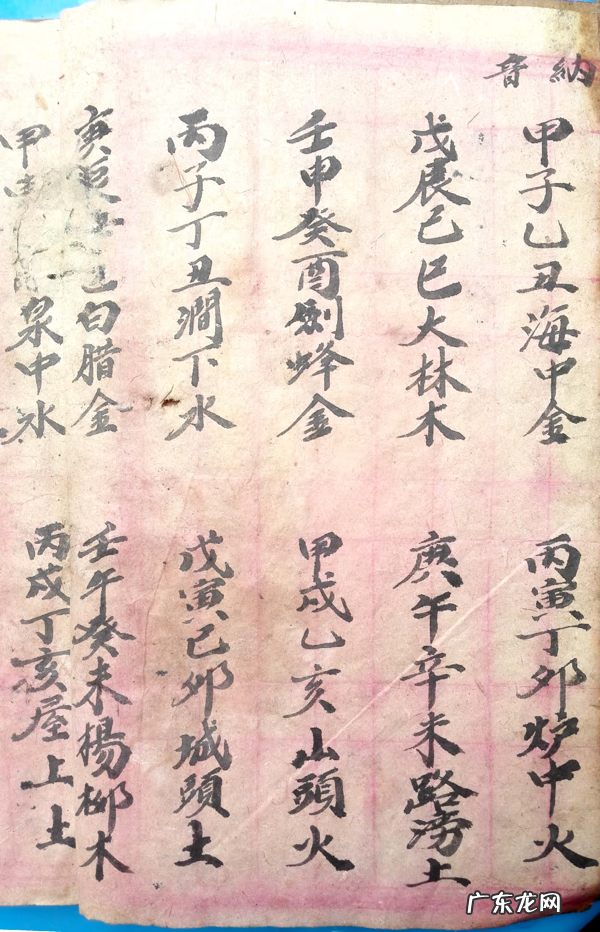 納音
甲子乙丑海中金
丙寅丁卯炉中火
戊辰己巳大林木
庚午辛未路滂土
壬申癸酉劍蜂金
甲戌乙亥山頭火
丙子丁丑澗下水
戊寅己卯城頭土
庚辰 白腊金
壬午癸未楊柳木
甲 泉中水
丙戌丁亥屋上土
广东龙网